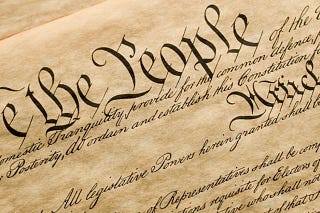 e the People of the
omestic Tranquility, provide for the common defence,
Posterity, do ordain and establish this Constitution fo
Articl
All legislative Powers herein granted shall be
of Representatives shall be com
requisite for Electors of
who shall not
of that